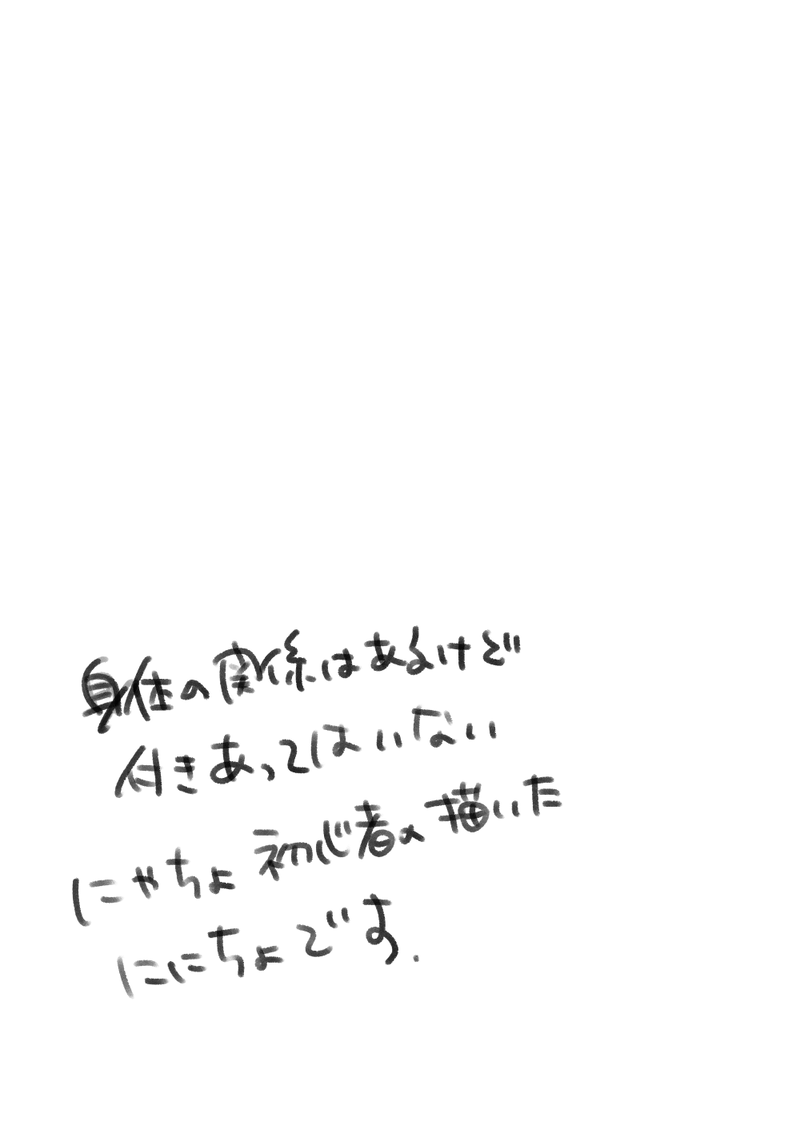 身体の関係はあるけど
付きあってはいない
にゃちょ初心者の描いた
ににちょです.